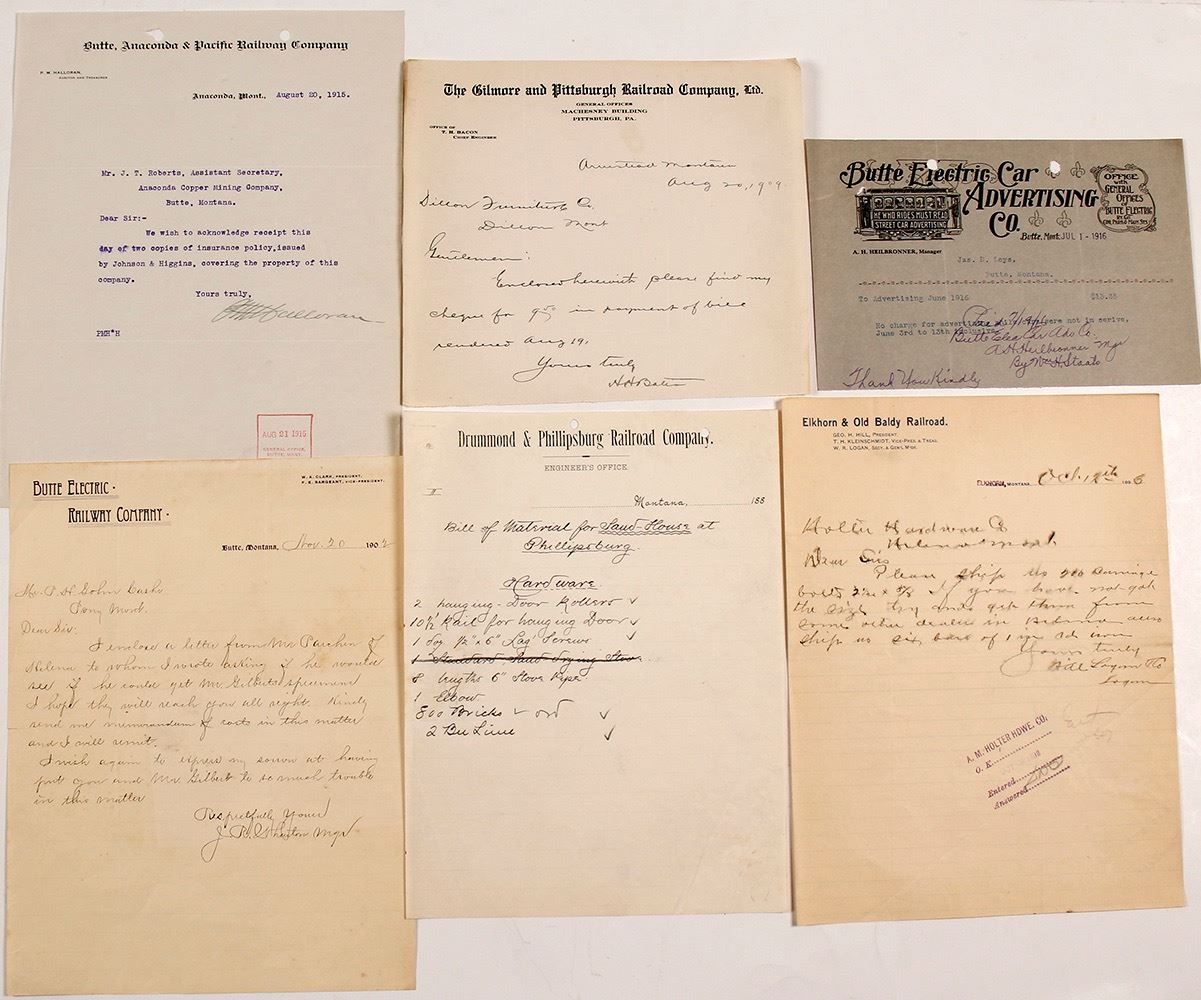 Butte, Anaconda & Pacific Railway Company
P. M. HALLORAN,
AUDITOR AND TREASURER
Anaconda, Mont., August 20, 1915.
Mr. J. T. Roberts, Assistant Secretary,
Anaconda Copper Mining Company,
Butte, Montana.
Dear Sir:-
We wish to acknowledge receipt this
day of two copies of insurance policy,issued
by Johnson & Higgins, covering the property of this
company.
Yours truly,
PM Halloran
PMH*H
AUG 21 1915
GENERAL OFFICE,
BUTTE, MONT.
The Gilmore and Pittsburgh Railroad Company, Ltd.
GENERAL OFFICES
MACHESNEY BUILDING
PITTSBURGH, PA.
OFFICE OF
T. H. BACON
CHIEF ENGINEER
Armstead Montana
Aug 20, 1909.
Dillon Furniture Co.
Dillon Mont
Gentlemen:
Enclosed herewith please find my
cheque for 9.50 in payment of bill
rendered Aug 19.
Yours truly
Butte Electric Car
ADVERTISING
CO.
HE WHO RIDES MUST READ
STREET CAR ADVERTISING
OFFICE
WITH
GENERAL
OFFICES
OF
BUTTE ELECTRIC
RY. CO.
COR. PARK & MAIN STS.
Butte, Mont. JUL 1 - 1916
A. H. HEILBRONNER, Manager
Jas. D. Leys,
Butte, Montana.
To Advertising June 1916 $13.35
No charge for advertising were not in serive,
June 3rd to 13th inclusive
Butte Elec Car Adv Co.
A H Heilbronner Mgr
By Wm H. Staats
Thank You Kindly
BUTTE ELECTRIC
RAILWAY COMPANY
W. A. CLARK, PRESIDENT.
F. E. SARGEANT, VICE-PRESIDENT.
Butte, Montana, Nov. 20 1902
Mr. P. H. Gohn
Pony Mont.
Dear Sir:
I enclose a letter from Mr Parchen of
Helena to whom I wrote asking if he would
see if he could get Mr. Gilberts specimens
I hope they will reach you all right. Kindly
send me memorandum of costs in this matter
and I will remit.
I wish again to express my sorrow at having
put you and Mr. Gilbert to so much trouble
in this matter
Respectfully Yours
J. R. Wharton Mgr
Drummond & Phillipsburg Railroad Company.
ENGINEER'S OFFICE.
Montana, 188
Bill of Material for Sand-House at
Phillipsburg.
Hardware.
2 hanging-Door Rollers ✓
10½ Rail for hanging Door ✓
1 doz ½" x 6" Lag Screws ✓
1 Standard Sand Drying Stove
8 lngths 6" Stove Pipe
1 Elbow
800 Bricks ✓ ord ✓
2 Bu Lime ✓
Elkhorn & Old Baldy Railroad.
GEO. H. HILL, PRESIDENT.
T. H. KLEINSCHMIDT, VICE-PRES. & TREAS.
W. R. LOGAN, SECY. & GEN'L MGR.
ELKHORN, MONTANA, Oct 189
Holter Hardware Co
Helena Mont.
Dear Sirs
Please ship us 200 Carriage
bolts If you have not got
the size try and get them from
some other dealer in Helena also
ship us six bars of
Yours truly
Logan
A. M. HOLTER HDWE. CO.
O. K.
Entered
Answered